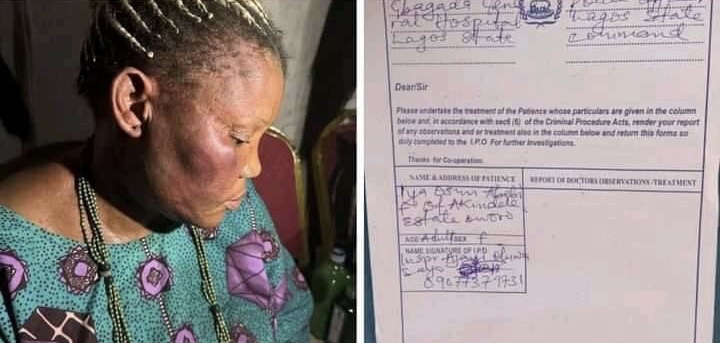 Gbagada Gene
ral Hospital
Lagos State
Lagos State
Command
Dear/Sir
Please undertake the treatment of the Patience whose particulars are given in the column
below and, in accordance with sec6 (6) of the Criminal Procedure Acts, render your report
of any observations and or treatment also in the column below and return this forms so
duly completed to the I.P.O For further Investigations.
Thanks for Co-operation.
NAME & ADDRESS OF PATIENCE
REPORT OF DOCTORS OBSERVATIONS /TREATMENT
Iya Osun
of Akindele
Estate
AGE Adult SEX f
NAME SIGNATURE OF I.P.O
Inspr Ajayi Oluwa
Seyo